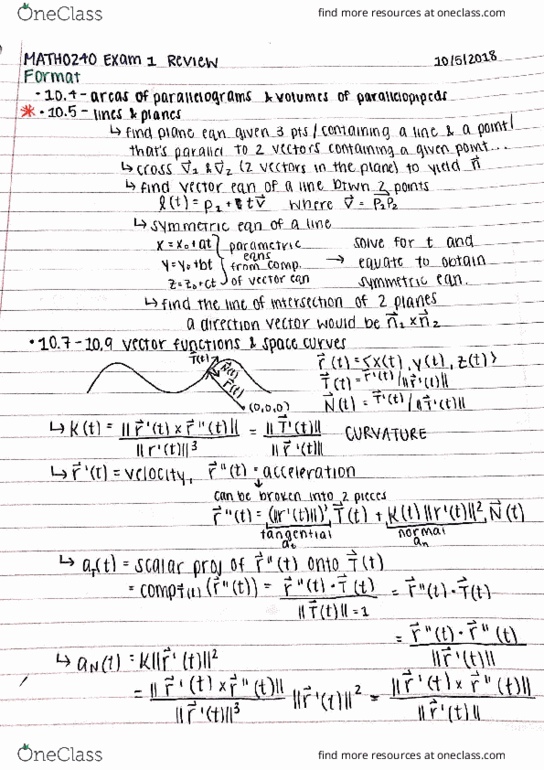 OneClass
find more resources at oneclass.com
MATH0240 Exam 1 Review
10/5/2018
Format
• 10.4 - areas of parallelograms & volumes of parallelopipeds
* • 10.5 - lines & planes
↳ find plane eqn given 3 pts/containing a line & a point/
that's parallel to 2 vectors containing a given point...
↳ cross v⃗₁ & v⃗₂ (2 vectors in the plane) to yield n⃗
↳ find vector eqn of a line btwn 2 points
l(t) = p₁ + tv⃗ where v⃗ = P₁P₂
↳ symmetric eqn of a line
x = x₀ + at } parametric solve for t and
y = y₀ + bt } eqns from comp. → equate to obtain
z = z₀ + ct } of vector eqn symmetric eqn.
↳ find the line of intersection of 2 planes
a direction vector would be n⃗₁ × n⃗₂
• 10.7 - 10.9 vector functions & space curves
T⃗(t) N⃗(t) r⃗(t) (0,0,0)
r⃗(t) = ⟨x(t), y(t), z(t)⟩
T⃗(t) = r⃗'(t) / ||r⃗'(t)||
N⃗(t) = T⃗'(t) / ||T⃗'(t)||
↳ K(t) = ||r⃗'(t) × r⃗''(t)|| / ||r'(t)||³ = ||T⃗'(t)|| / ||r⃗'(t)|| CURVATURE
↳ r⃗'(t) = velocity, r⃗''(t) = acceleration
can be broken into 2 pieces
r⃗''(t) = (||r'(t)||)' T⃗(t) + K(t) ||r'(t)||² N⃗(t)
tangential normal
aₜ aₙ
↳ a_T(t) = scalar proj of r⃗''(t) onto T⃗(t)
= comp_T(t) (r⃗''(t)) = r⃗''(t) · T⃗(t) / ||T⃗(t)|| = 1 = r⃗''(t) · T⃗(t)
= r⃗''(t) · r⃗''(t) / ||r⃗'(t)||
↳ a_N(t) = K||r⃗'(t)||²
= ||r⃗'(t) × r⃗''(t)|| / ||r⃗'(t)||³ ||r⃗'(t)||² = ||r⃗'(t) × r⃗''(t)|| / ||r⃗'(t)||
OneClass
find more resources at oneclass.com